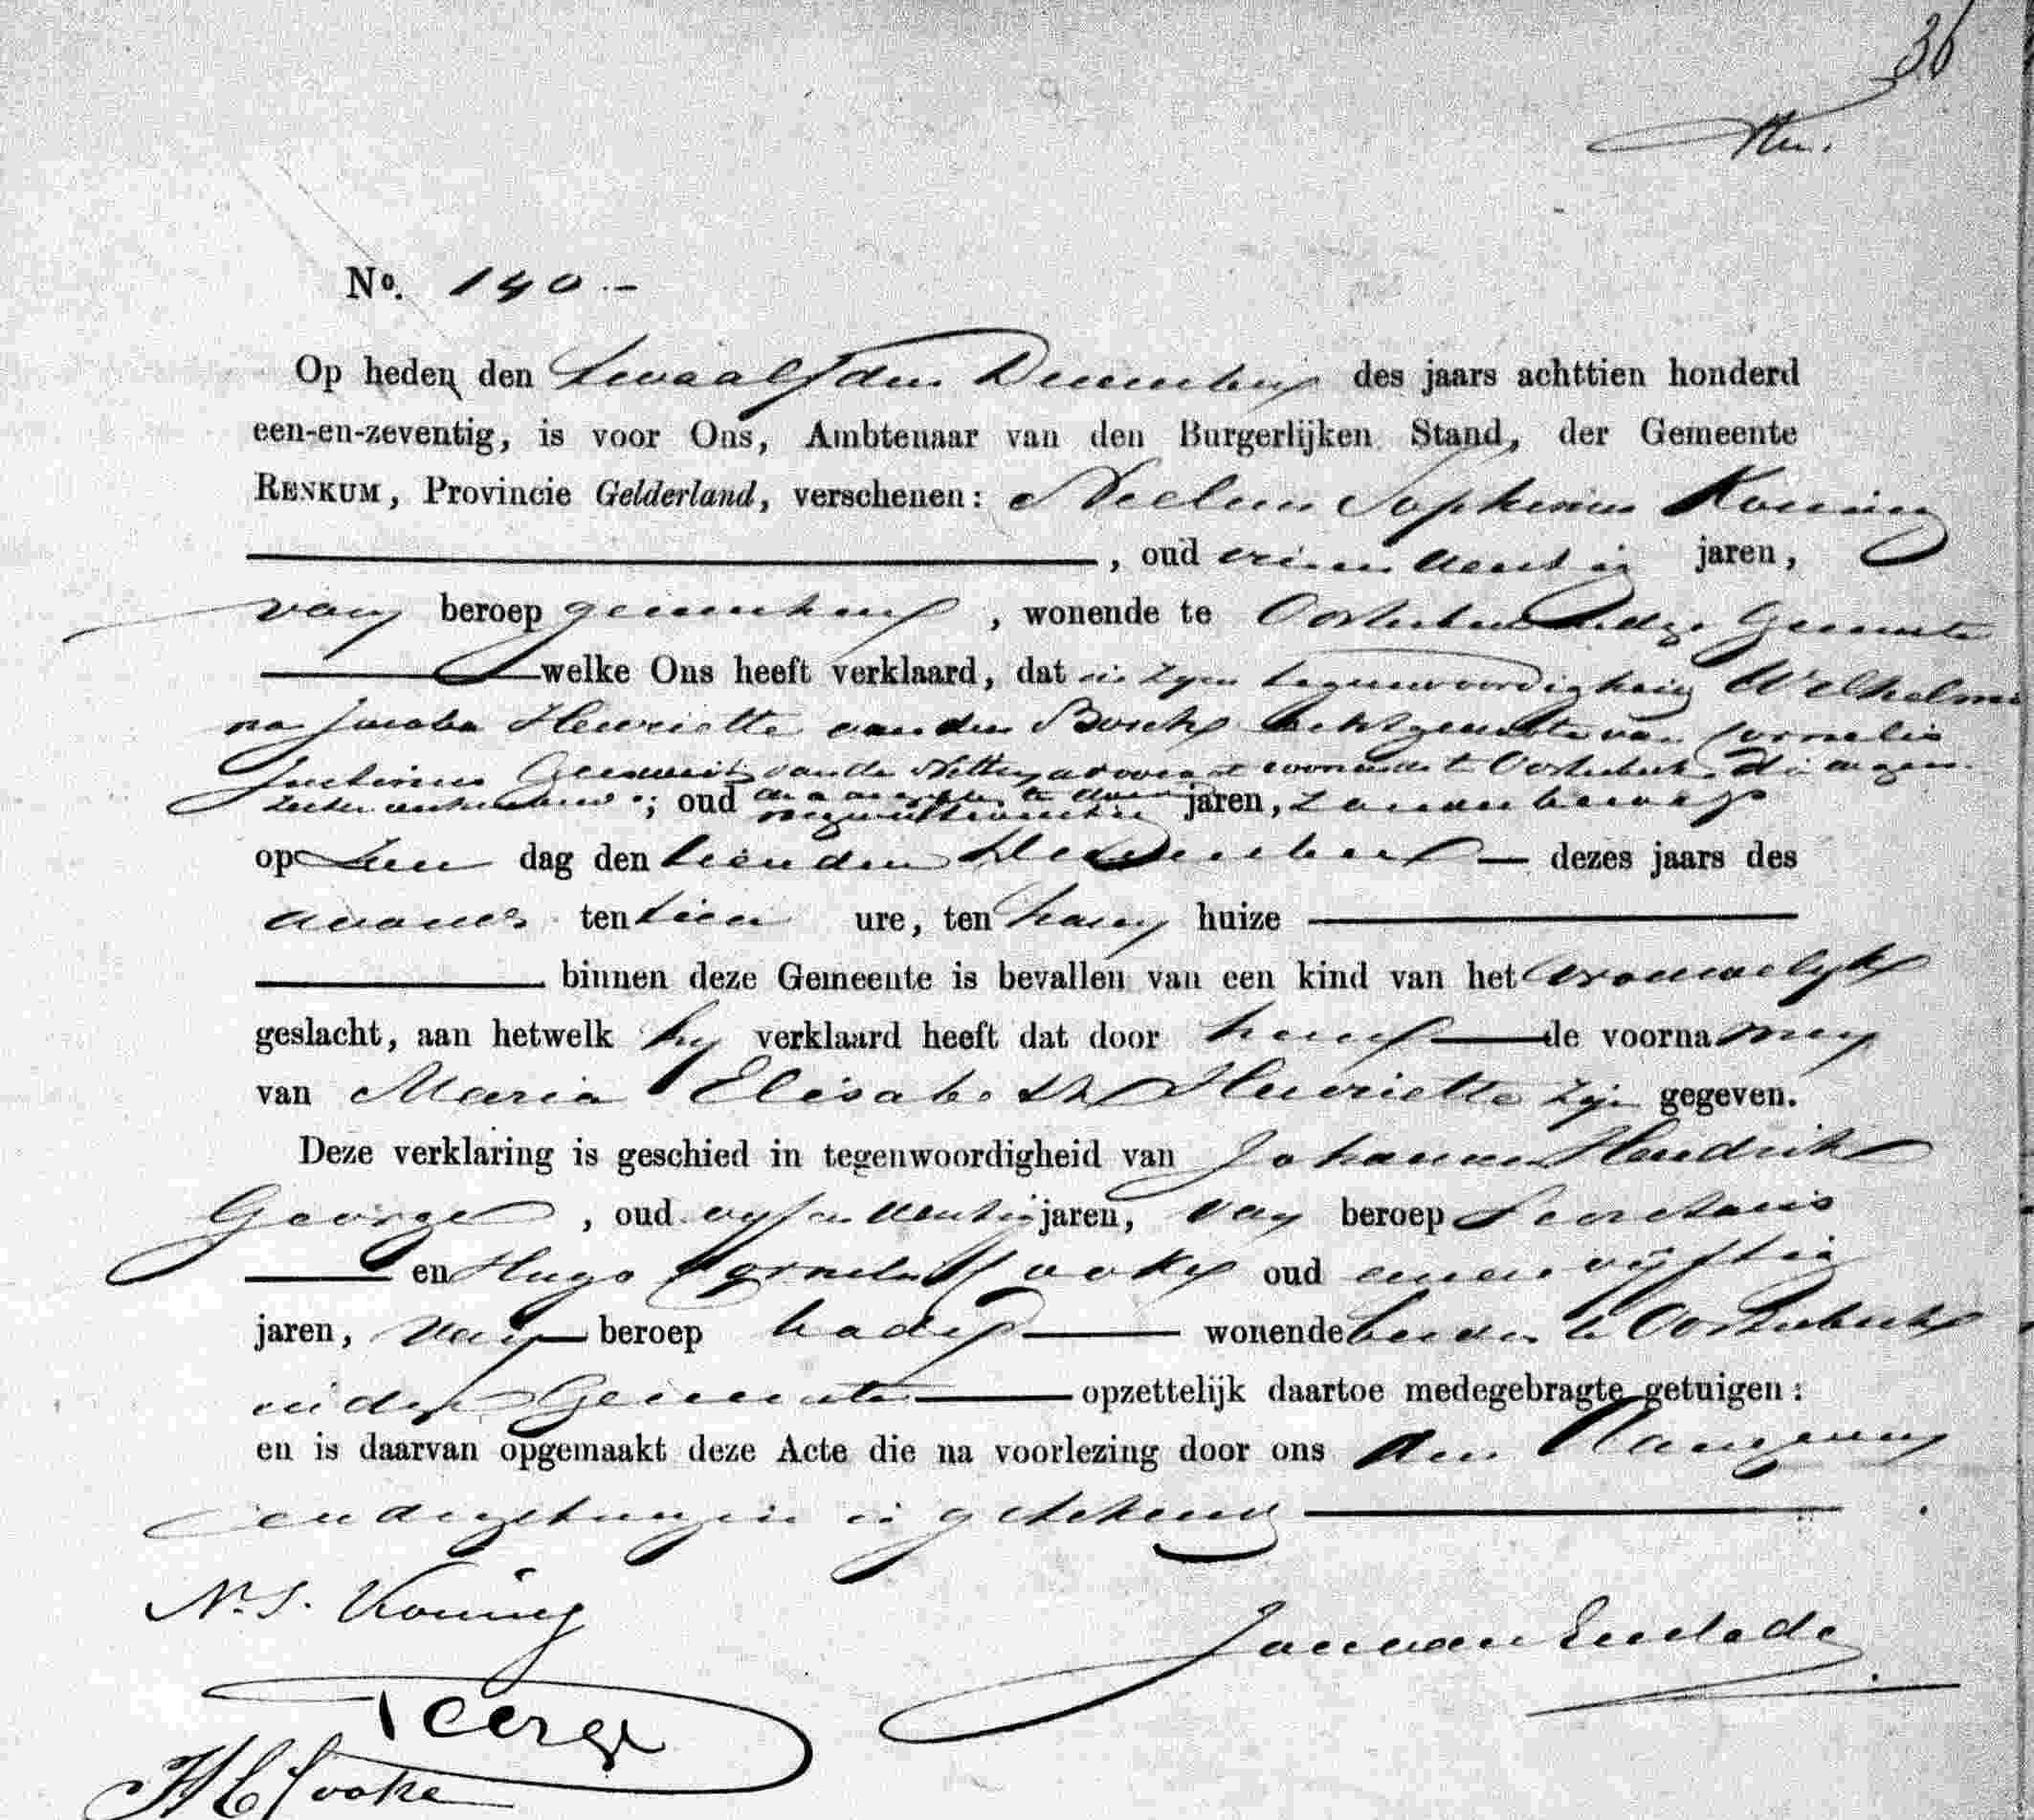 36
No. 140.-
Op heden den twaalfden December des jaars achttien honderd
een-en-zeventig, is voor Ons, Ambtenaar van den Burgerlijken Stand, der Gemeente
RENKUM, Provincie Gelderland, verschenen: Neelmeis Sophinus Koning
, oud jaren,
van beroep geneesheer, wonende te Oosterbeek dezer Gemeente
welke Ons heeft verklaard, dat in zijn tegenwoordigheid Wilhelmi
na Jacoba Henriette van den Bosch echtgenoote van Cornelis
Justinus Geisweit van der Netten advocaat wonende te Oosterbeek die
; oud jaren, zonder beroep
op Zondag den tienden December dezes jaars des
avonds ten tien ure, ten haren huize
binnen deze Gemeente is bevallen van een kind van het vrouwelijk
geslacht, aan hetwelk hij verklaard heeft dat door hem de voornamen
van Maria Elisabeth Henriette zijn gegeven.
Deze verklaring is geschied in tegenwoordigheid van Johannes Hendrik
George, oud vijf en twintig jaren, van beroep Secretaris
en Hugo Cornelis Cooke oud een en vijftig
jaren, van beroep bode wonende beiden te Oosterbeek
in deze Gemeente opzettelijk daartoe medegebragte getuigen:
en is daarvan opgemaakt deze Acte die na voorlezing door ons den Aangever
en de getuigen is geteekend
N. S. Koning
Jan van Embde
George
H C Cooke